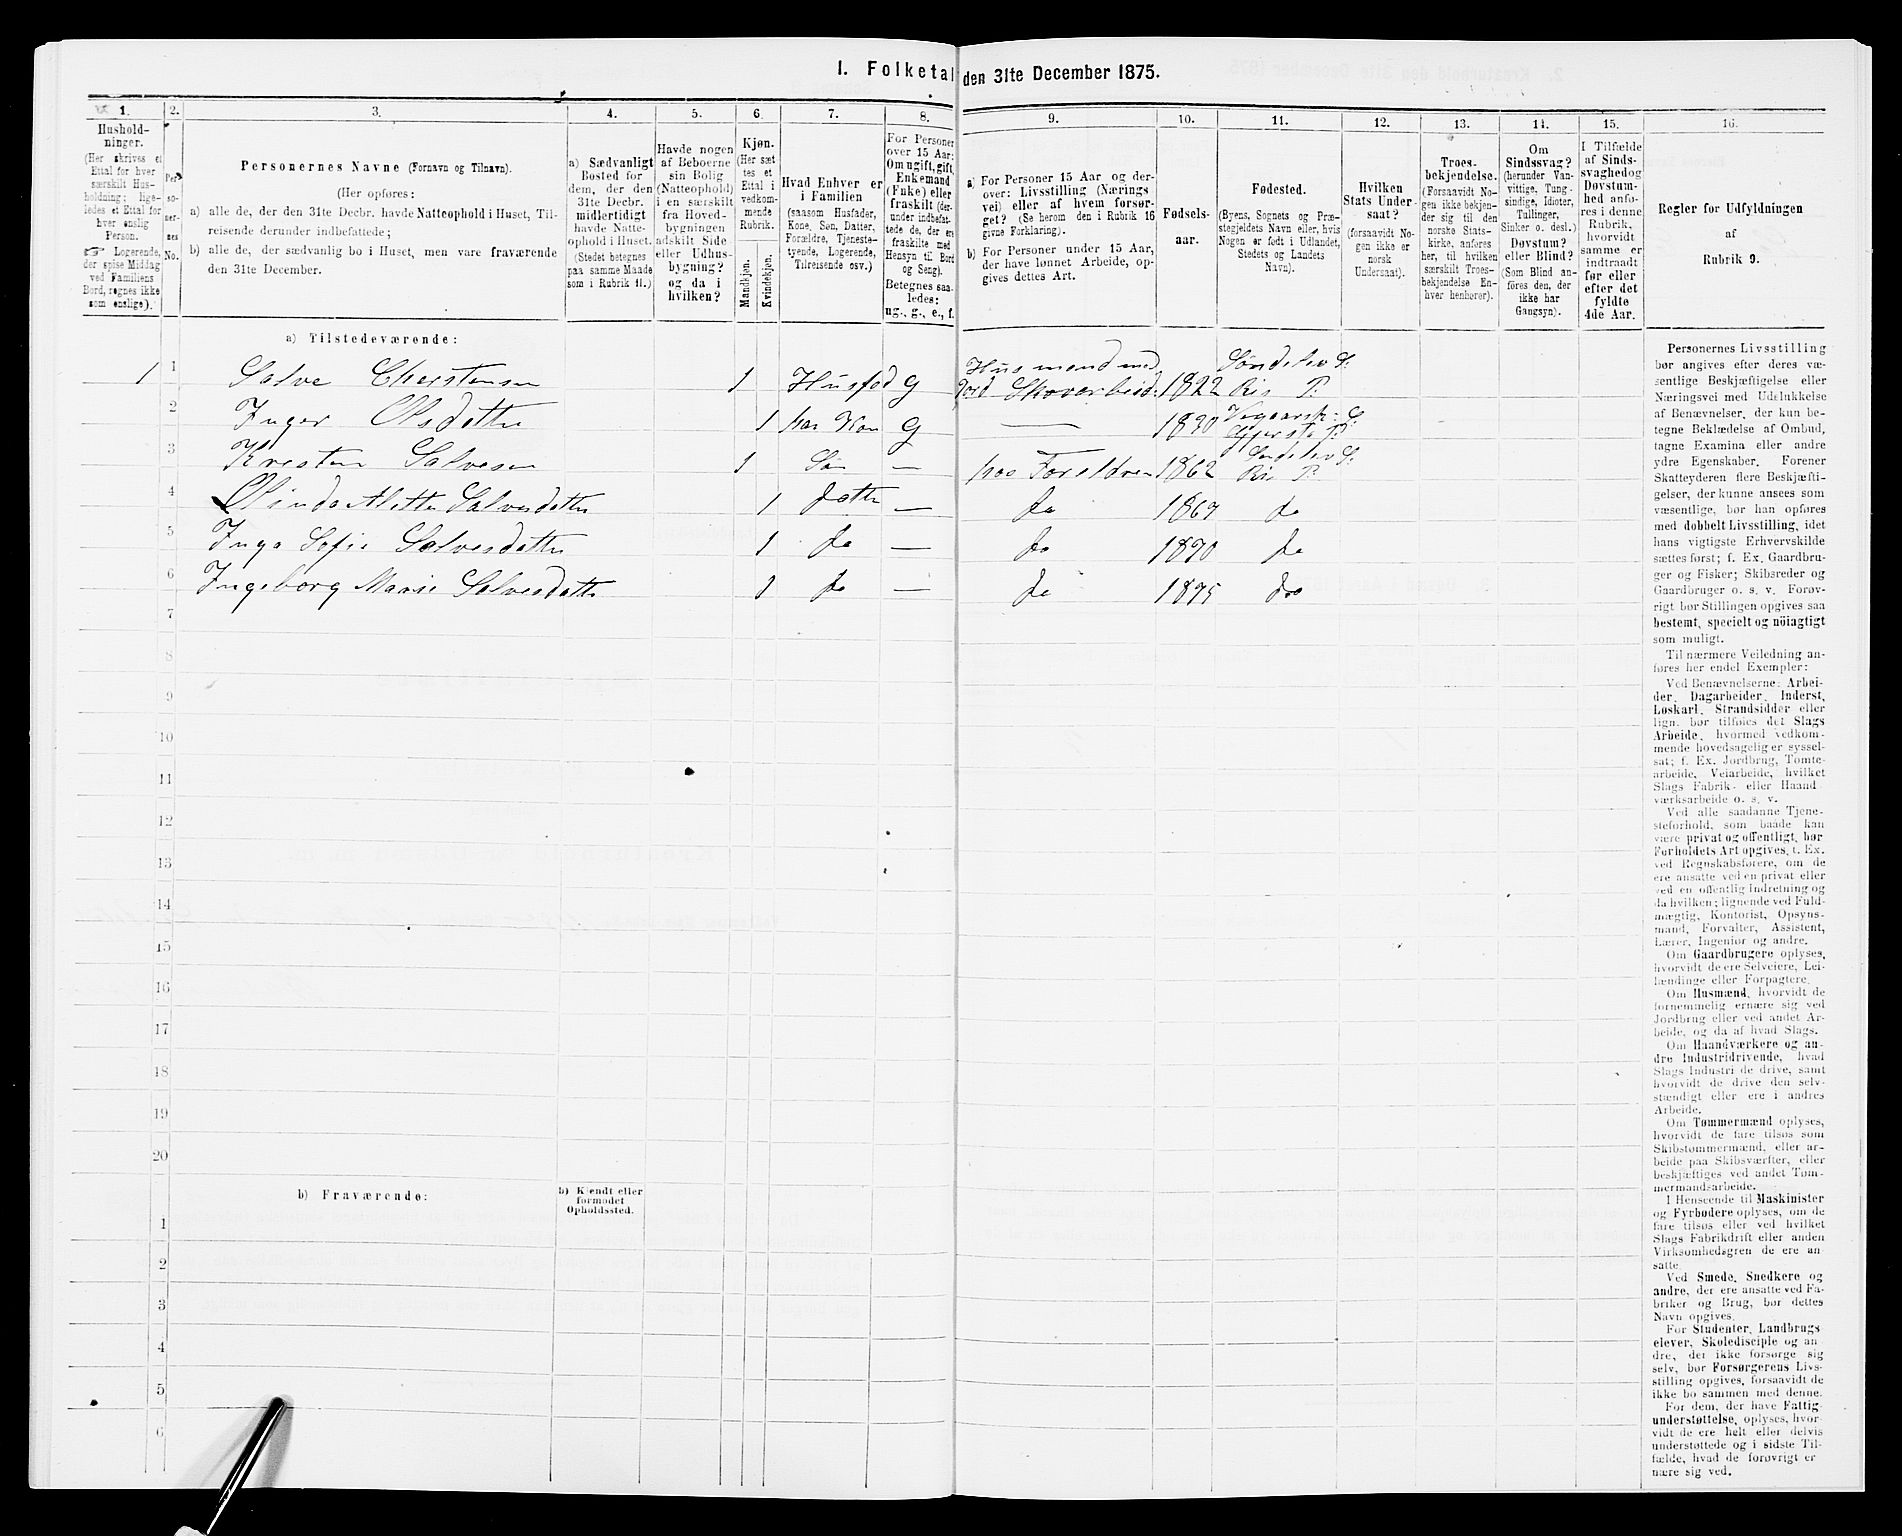 1. Folketal den 31te December 1875.
1.
2.
3.
4.
5.
6.
7.
8.
9.
10.
11.
12.
13.
14.
15.
16.
Hushold-
ninger.
(Her skrives et
Ettal for hver
særskilt Hus-
holdning; lige-
ledes et Ettal for
hver enslig
Person.
☞ Logerende,
der spise Middag
ved Familiens
Bord, regnes ikke
som enslige).
Per-
so-
ner-
nes
No.
Personernes Navne (Fornavn og Tilnavn).
(Her opføres:
a) alle de, der den 31te Decbr. havde Natteophold i Huset, Til-
reisende derunder indbefattede;
b) alle de, der sædvanlig bo i Huset, men vare fraværende
den 31te December.
a) Sædvanligt
Bosted for
dem, der den
31te Decbr.
midlertidigt
havde Natte-
ophold i Huset.
(Stedet betegnes
paa samme Maade
som i Rubrik 11.)
Havde nogen
af Beboerne
sin Bolig
(Natteophold)
i en særskilt
fra Hoved-
bygningen
adskilt Side-
eller Udhus-
bygning?
og da i
hvilken?
Kjøn.
(Her sæt-
tes et
Ettal i
vedkom-
mende
Rubrik.
Mandkjøn.
Kvindekjøn.
Hvad Enhver er
i Familien
(saasom Husfader,
Kone, Søn, Datter,
Forældre, Tjeneste-
tyende, Logerende,
Tilreisende osv.)
For Personer
over 15 Aar:
Om ugift, gift,
Enkemand
(Enke) eller
fraskilt (der-
under indbefat-
tede de, der ere
fraskilte med
Hensyn til Bord
og Seng).
Betegnes saa-
ledes:
ug., g., e., f.
a) For Personer 15 Aar og der-
over: Livsstilling (Nærings-
vei) eller af hvem forsør-
get? (Se herom den i Rubrik 16
givne Forklaring).
b) For Personer under 15 Aar,
der have lønnet Arbeide, op-
gives dettes Art.
Fødsels-
aar.
Fødested.
(Byens, Sognets og Præ-
stegjeldets Navn eller, hvis
Nogen er født i Udlandet,
Stedets og Landets
Navn).
Hvilken
Stats Under-
saat?
(forsaavidt No-
gen ikke er
norsk
Undersaat).
Troes-
bekjendelse.
(Forsaavidt No-
gen ikke bekjen-
der sig til den
norske Stats-
kirke, anføres
her, til hvilken
særskilt Troes-
bekjendelse En-
hver henhører).
Om
Sindssvag?
(herunder Van-
vittige, Tung-
sindige, Idioter,
Tullinger,
Sinker o. desl.)
Døvstum?
eller Blind?
(Som Blind an-
føres den, der
ikke har
Gangsyn).
I Tilfælde
af Sinds-
svaghed og
Døvstum-
hed anfø-
res i denne
Rubrik,
hvorvidt
samme er
indtraadt
før eller
efter det
fyldte
4de Aar.
Regler for Udfyldningen
af
Rubrik 9.
a) Tilstedeværende:
1 1 Salve Cherstensen 1 Husfad g Husmand med Jord Skovarbeid: 1822 Søndelev S: Ris P.
2 Inger Olsdatter 1 has Kon g — 1830 Vegaarsh: S: Gjerstad P.
3 Kresten Salvesen 1 Søn — hos Foreldren 1862 Søndelev S: Ris P.
4 Olinda Alette Salvesdatter 1 Datter — do 1867 do
5 Inga Sofie Salvesdatter 1 do — do 1870 do
6 Ingeborg Marie Salvesdatter 1 do — do 1875 do
7
8
9
10
11
12
13
14
15
16
17
18
19
20
b) Fraværende:
b) Kjendt eller
formodet
Opholdssted.
1
2
3
4
5
6
Personernes Livsstilling
bør angives efter deres væ-
sentlige Beskjæftigelse eller
Næringsvei med Udelukkelse
af Benævnelser, der kun be-
tegne Beklædelse af Ombud,
tagne Examina eller andre
ydre Egenskaber. Forener
Skatteyderen flere Beskjæfti-
gelser, der kunne ansees som
væsentlige, bør han opføres
med dobbelt Livsstilling, idet
hans vigtigste Erhvervskilde
sættes først; f. Ex. Gaardbru-
ger og Fisker; Skibsreder og
Gaardbruger o. s. v. Forøv-
rigt bør Stillingen opgives saa
bestemt, specielt og nöiagtigt
som muligt.
Til nærmere Veiledning an-
føres her endel Exempler:
Ved Benævnelserne: Arbei-
der, Dagarbeider, Inderst,
Løskarl, Strandsidder eller
lign. bør tilføies det Slags
Arbeide, hvormed vedkom-
mende hovedsagelig er syssel-
sat; f. Ex. Jordbrug, Tomte-
arbeide, Veiarbeide, hvilket
Slags Fabrik- eller Haand-
værksarbeide o. s. v.
Ved alle saadanne Tjene-
steforhold, som baade kan
være privat og offentligt, bør
Forholdets Art opgives, f. Ex.
ved Regnskabsførere, om de
ere ansatte ved en privat eller
ved en offentlig Indretning og
da hvilken; lignende ved Fuld-
mægtig, Kontorist, Opsyns-
mand, Forvalter, Assistent,
Lærer, Ingeniør og andre.
Om Gaardbrugere oplyses,
hvorvidt de ere Selveiere, Lei-
lændinge eller Forpagtere.
Om Husmænd, hvorvidt de
fornemmelig ernære sig ved
Jordbrug eller ved andet Ar-
beide, og da af hvad Slags.
Om Haandværkere og an-
dre Industridrivende, hvad
Slags Industri de drive, samt
hvorvidt de drive den selv-
stændigt eller ere i andres
Arbeide.
Om Tømmermænd oplyses,
hvorvidt de fare tilsøs som
Skibstømmermænd, eller ar-
beide paa Skibsværfter, eller
beskjæftiges ved andet Tøm-
mermandsarbeide.
I Henseende til Maskinister
og Fyrbødere oplyses, om de
fare tilsøs eller ved hvilket
Slags Fabrikdrift eller anden
Virksomhedsgren de ere an-
satte.
Ved Smede, Snedkere og
andre, der ere ansatte ved Fa-
briker og Brug, bør dettes
Navn opgives.
For Studenter, Landbrugs-
elever, Skoledisciple og an-
dre, der ikke forsørge sig
selv, bør Forsørgerens Livs-
stilling opgives, forsaavidt de
ikke bo sammen med denne.
For dem, der have Fattig-
understøttelse, oplyses, hvor-
vidt de ere helt eller delvis
understøttede og i sidste Til-
fælde, hvad de forøvrigt er-
nære sig ved.